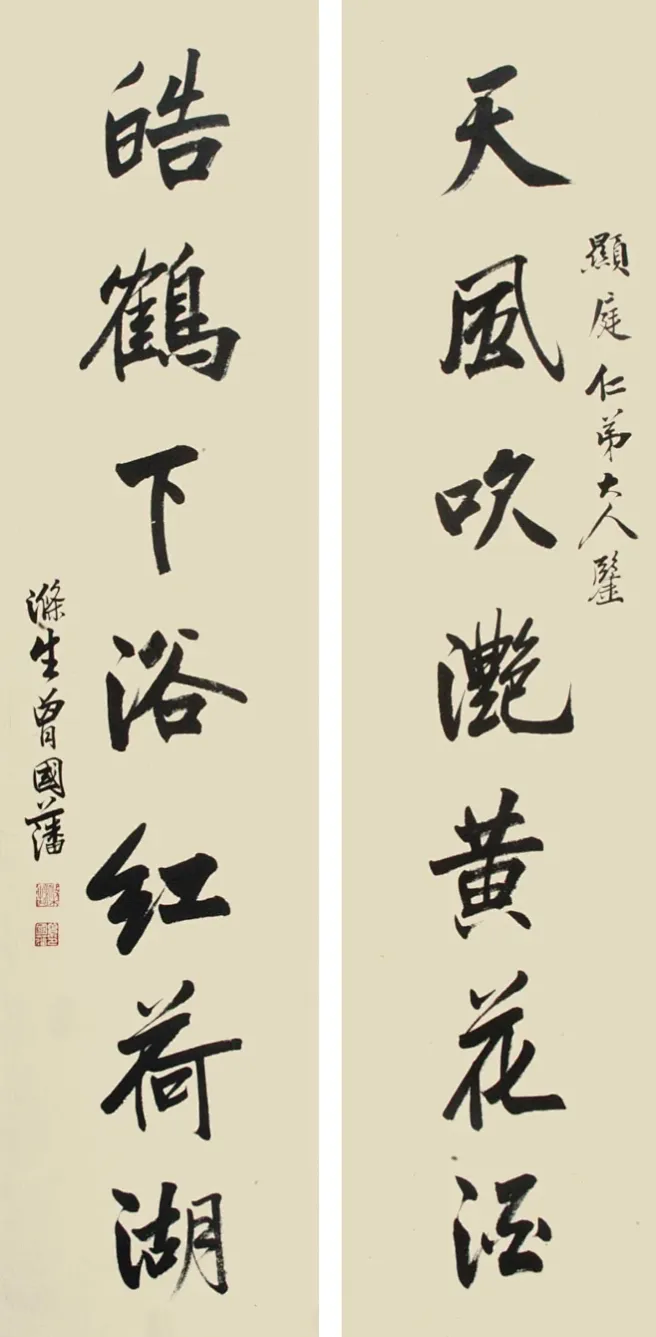 顯庭仁弟大人鑒
天風吹灧黄花酒
皓鶴下浴红荷湖
滌生曾國藩